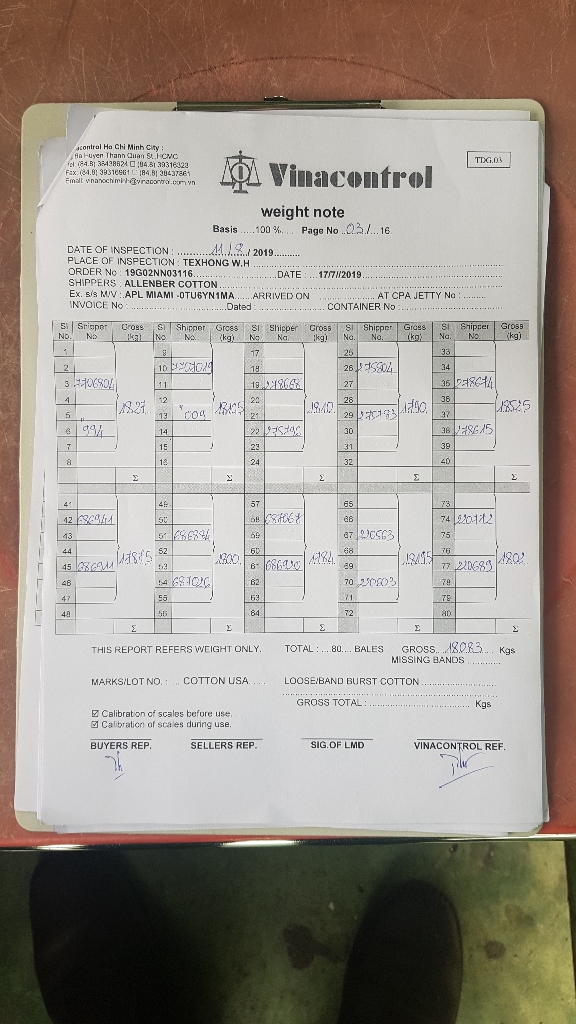 Vinacontrol Ho Chi Minh City :
Ba Huyen Thanh Quan St, HCMC
Tel: (84.8) 38438624 □ (84.8) 39316323
Fax: (84.8) 39316961 □ (84.8) 38437861
Email: vinahochiminh@vinacontrol.com.vn
Vinacontrol
TDG.03
weight note
Basis .....100 %..... Page No ..03/...16.
DATE OF INSPECTION : ..........11/8/ 2019..........
PLACE OF INSPECTION : TEXHONG W.H
ORDER No : 19G02NN03116 DATE : 17/7//2019
SHIPPERS : ALLENBER COTTON
Ex. s/s M/V : APL MIAMI -0TU6YN1MA ARRIVED ON AT CPA JETTY No :
INVOICE No : Dated : CONTAINER No :
Sl No. Shipper No. Gross (kg) Sl No. Shipper No. Gross (kg) Sl No. Shipper No. Gross (kg) Sl No. Shipper No. Gross (kg) Sl No. Shipper No. Gross (kg)
1 9 17 25 33
2 10 18 26 275804 34
3 2706804 11 19 278668 27 35 278674
4 1827 12 20 1810 28 1790 36
5 13 009 21 29 275783 37
6 994 14 22 275796 30 38 278615
7 15 23 31 39
8 16 24 32 40
Σ Σ Σ Σ Σ
41 49 57 65 73
42 686941 50 58 687067 66 74 220712
43 51 686894 59 67 220563 75
44 52 60 68 76
45 686911 53 1800 61 686920 1784 69 77 220689 1802
46 54 687026 62 70 220603 78
47 55 63 71 79
48 56 64 72 80
Σ Σ Σ Σ Σ
THIS REPORT REFERS WEIGHT ONLY. TOTAL : ...80.... BALES GROSS....18083..... Kgs
MISSING BANDS
MARKS/LOT NO. : ... COTTON USA LOOSE/BAND BURST COTTON
GROSS TOTAL : Kgs
☑ Calibration of scales before use.
☑ Calibration of scales during use.
BUYERS REP. SELLERS REP. SIG.OF LMD VINACONTROL REF.